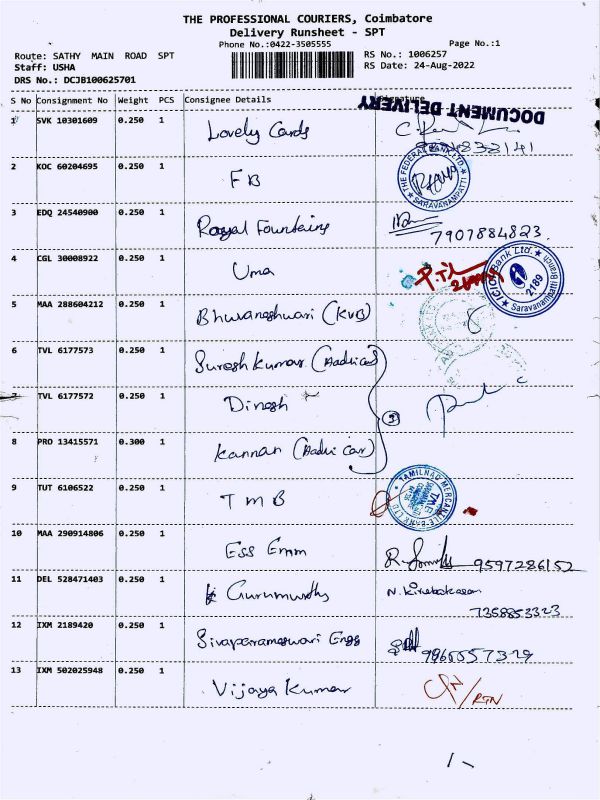 THE PROFESSIONAL COURIERS, Coimbatore
Delivery Runsheet - SPT
Phone No.:0422-3505555
Page No.:1
Route: SATHY MAIN ROAD SPT
RS No.: 1006257
Staff: USHA
RS Date: 24-Aug-2022
DRS No.: DCJB100625701
S No Consignment No Weight PCS Consignee Details Signature
DOCUMENT DELIVERY
1 SVK 10301609 0.250 1 Lovely Cards
833141
2 KOC 60204695 0.250 1 FB
THE FEDERAL BANK LTD. SARAVANAMPATTI
3 EDQ 24540900 0.250 1 Royal Fountains
7907884823.
4 CGL 30008922 0.250 1 Uma
ICICI Bank Ltd. 2189 Saravanampatti Branch
5 MAA 288604212 0.250 1 Bhuvaneshwari (KVB)
6 TVL 6177573 0.250 1 Suresh Kumar (Aadhi Car)
TVL 6177572 0.250 1 Dinesh
3
8 PRO 13415571 0.300 1 Kannan (Aadhi Car)
9 TUT 6106522 0.250 1 TMB
TAMILNAD MERCANTILE BANK LTD
10 MAA 290914806 0.250 1 Ess Emm
9597286152
11 DEL 528471403 0.250 1 Gurumurthy
N. Kirubakaran
7358853323
12 IXM 2189420 0.250 1 Sivaparameswari Engg
9965557329
13 IXM 502025948 0.250 1 Vijaya Kumar
/RTN